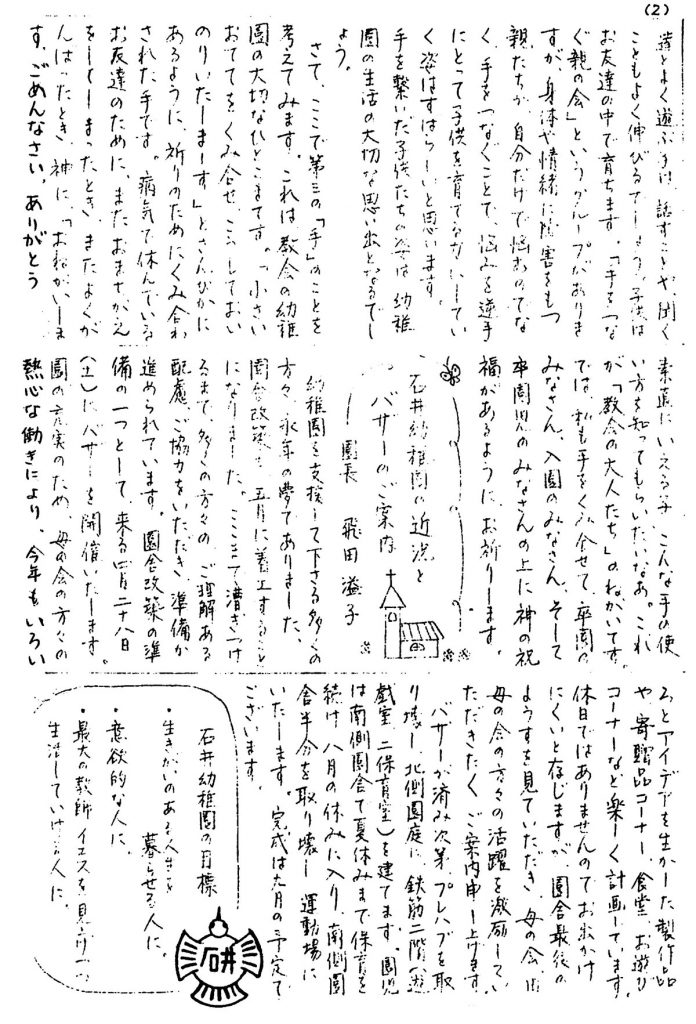 (2)
達とよく遊ぶ子は、話すことや聞く
こともよく伸びるでしょう。子供は
お友達の中で育ちます。「手をつな
ぐ親の会」というグループがありま
すが、身体や情緒に障害をもつ
親たちが、自分だけで悩むのでな
く、手をつなぐことで、悩みを逆手
にとって子供を育てるがいしてい
く姿はすばらしいと思います。
手を繋いだ子供たちの姿は、幼稚
園の生活の大切な思い出となるでし
ょう。
さて、ここで第三の「手」のことを
考えてみます。これは教会の幼稚
園の大切なひとこまです。「小さい
おててをくみ合せ、こうしておい
のりいたしまーす」とさんびかに
あるように、祈りのためにくみ合わ
された手です。病気で休んでいる
お友達のために、またおまちがえ
をしてしまったとき、またよくが
んばったとき、神に、「おねがいしま
す、ごめんなさい、ありがとう
素直にいえる子、こんな手の使
い方を知ってもらいたいなあ。これ
が「教会の大人たち」のねがいです。
では、私も手をくみ合せて、卒園の
みなさん、入園のみなさん、そして
卒園児のみなさんの上に神の祝
福があるように、お祈りします。
石井幼稚園の近況と
バザーのご案内
園長 飛田溢子
幼稚園を支援して下さる多くの
方々、永年の夢でありました、
園舎改築も、五月に着工すること
になりました。ここまで漕ぎつけ
るまで、多くの方々の、ご理解ある
配慮、ご協力をいただき、準備が
進められています。園舎改築の準
備の一つとして、来る四月二十八日
(土)にバザーを開催いたします。
園の充実のため、母の会の方々の
熱心な働きにより、今年もいろい
ろとアイデアを生かした製作品
や、寄贈品コーナー、食堂、お遊び
コーナーなど楽しく計画しています。
休日ではありませんのでお出かけ
にくいと存じますが、園舎最後の
ようすを見ていただき、母の会、
母の会の方々の活躍を激励してい
ただきたく、ご案内申し上げます。
バザーが済み次第、プレハブを取
り壊し、北側園庭に、鉄筋二階(遊
戯室、二保育室)を建てます。園児
は南側園舎で夏休みまで保育を
続け、八月の休みに入り、南側園
舎半分を取り壊し、運動場に
いたします。完成は九月の予定で
ございます。
石井幼稚園の目標
・生きがいのある人生を
暮らせる人に。
・意欲的な人に。
・最大の教師イエスを見つけつつ
生活していける人に。
石井